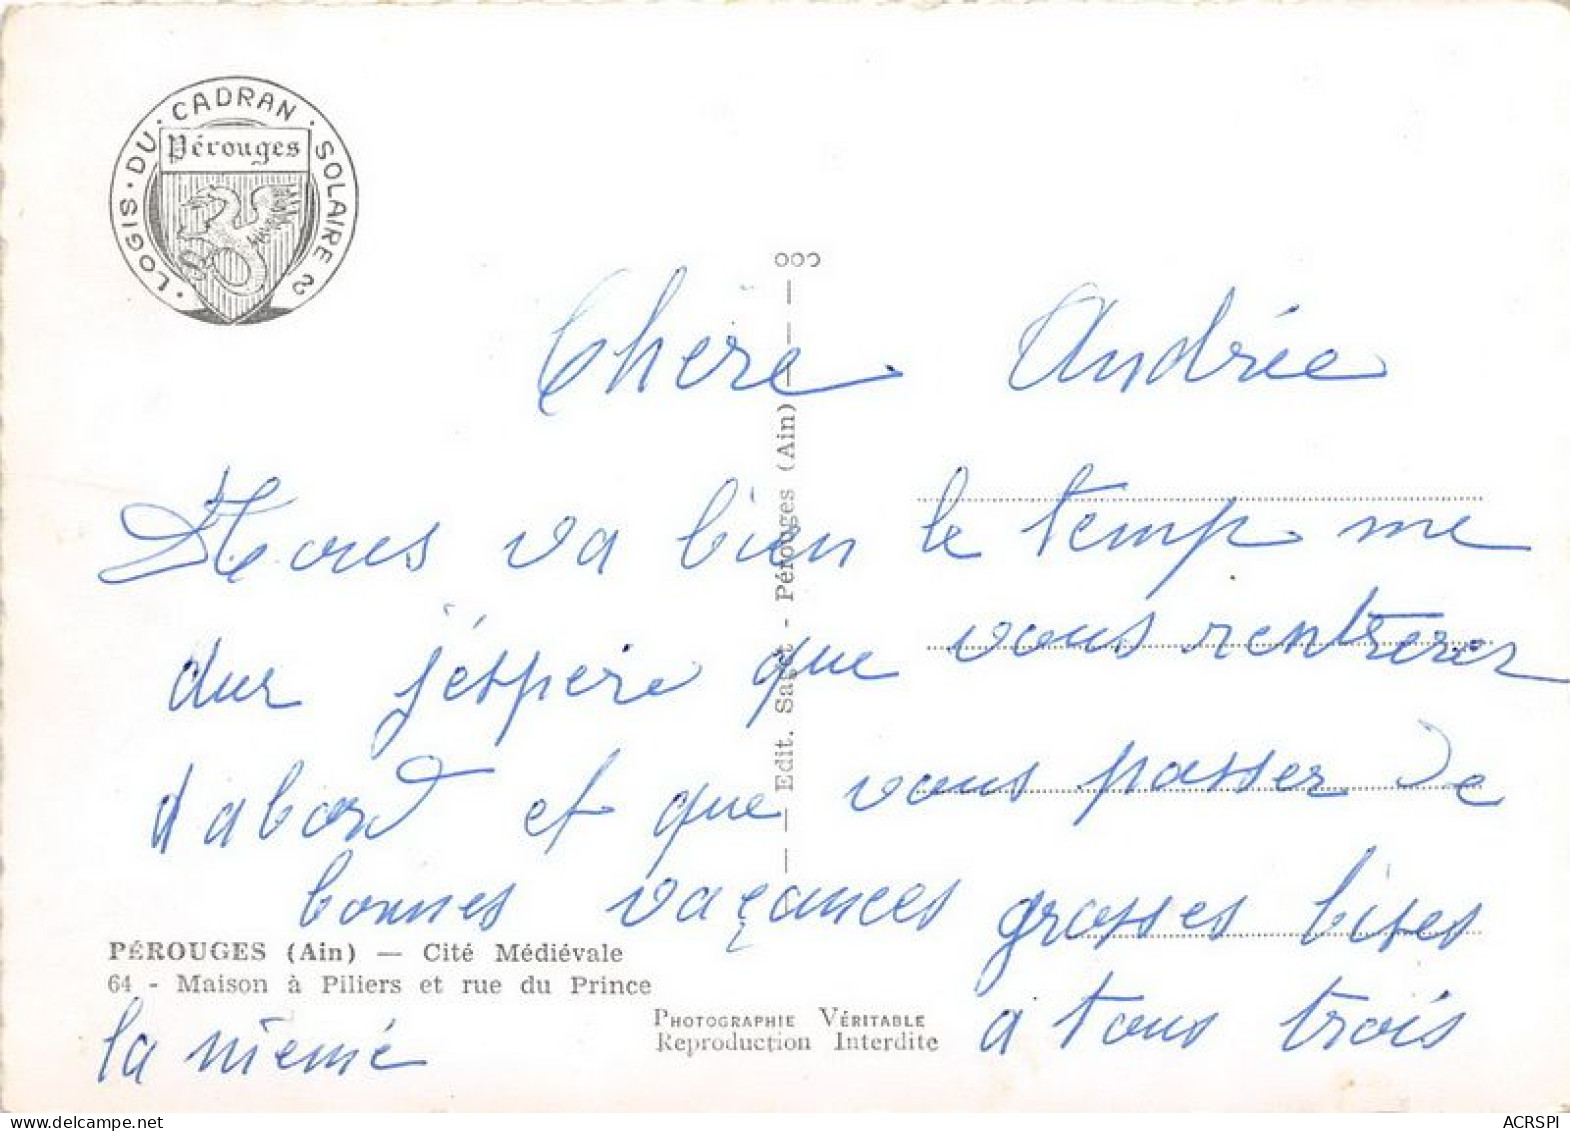 · LOGIS · DU · CADRAN · SOLAIRE
Pérouges
Chère Andrée
va bien le temp me
dur j'éspère que vous rentrerez
d'abord et que vous passer de
bonnes vaçances grosses bises
a tous trois
la mémé
PÉROUGES (Ain) — Cité Médiévale
64 - Maison à Piliers et rue du Prince
PHOTOGRAPHIE VÉRITABLE
Reproduction Interdite
Edit. Saget - Pérouges (Ain)
ACRSPI